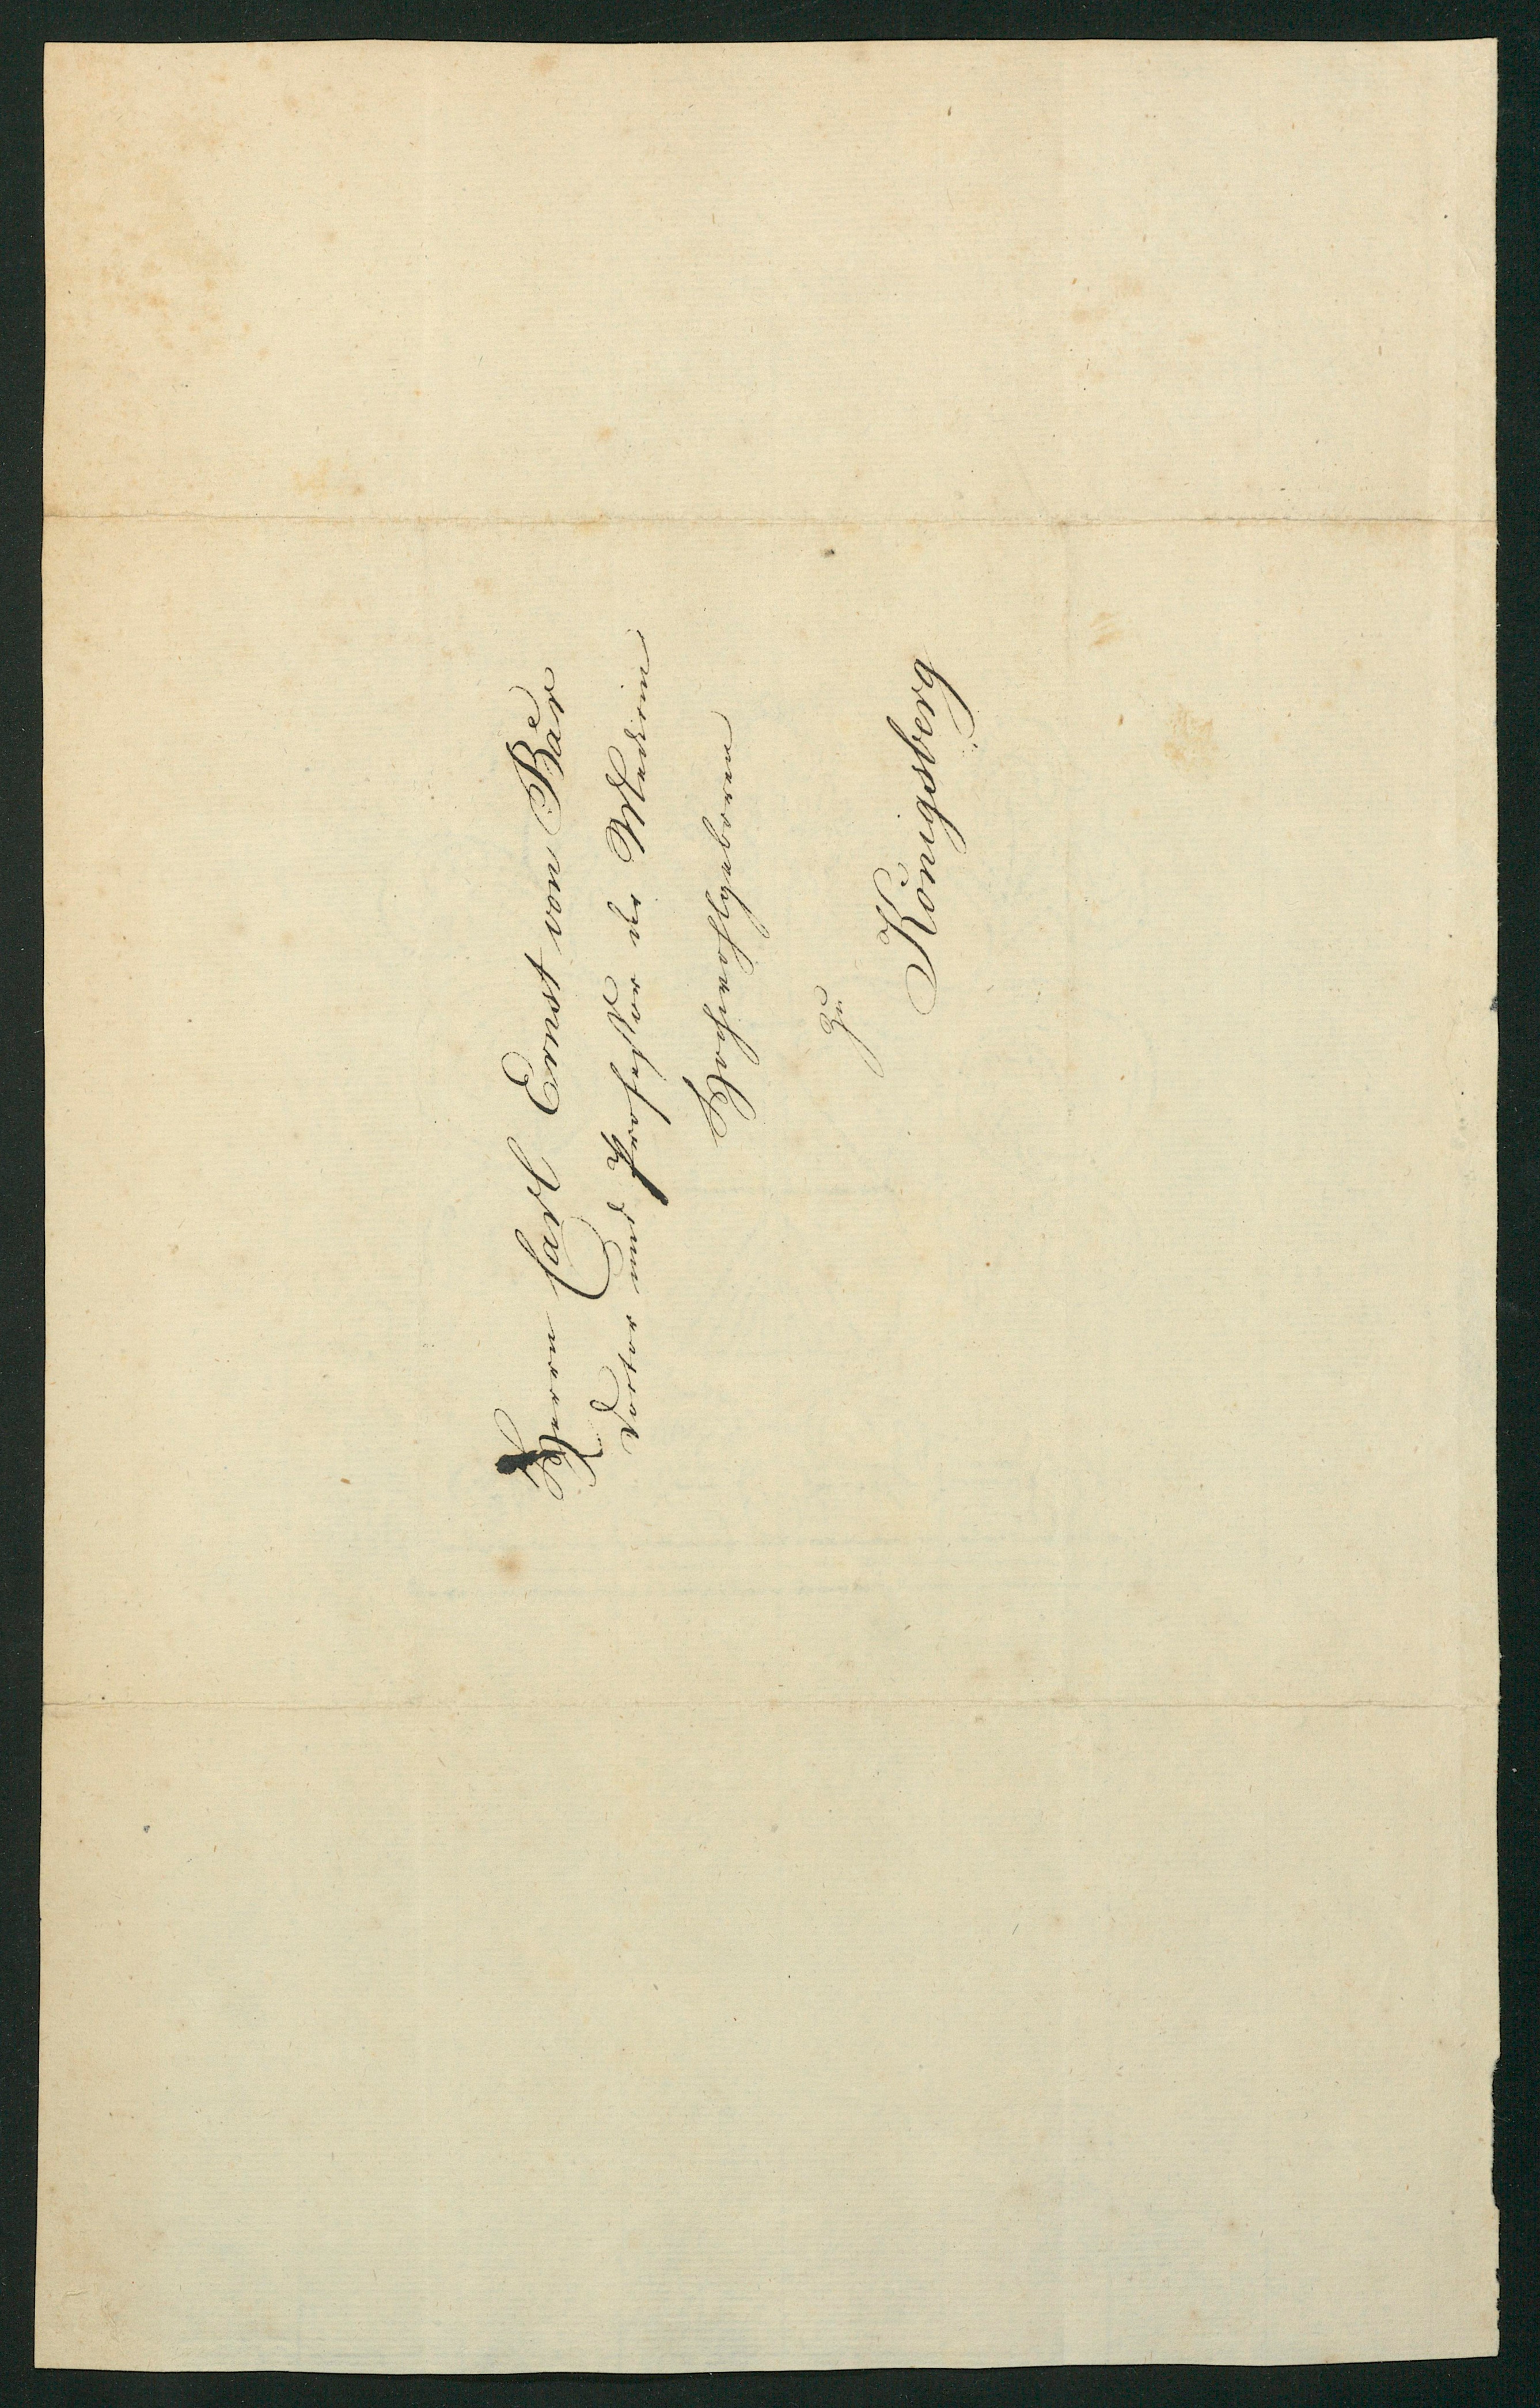 Herrn Carl Ernst von Bär
Doctor und Professor der Medicin
Hochwohlgeboren
zu
Königsberg